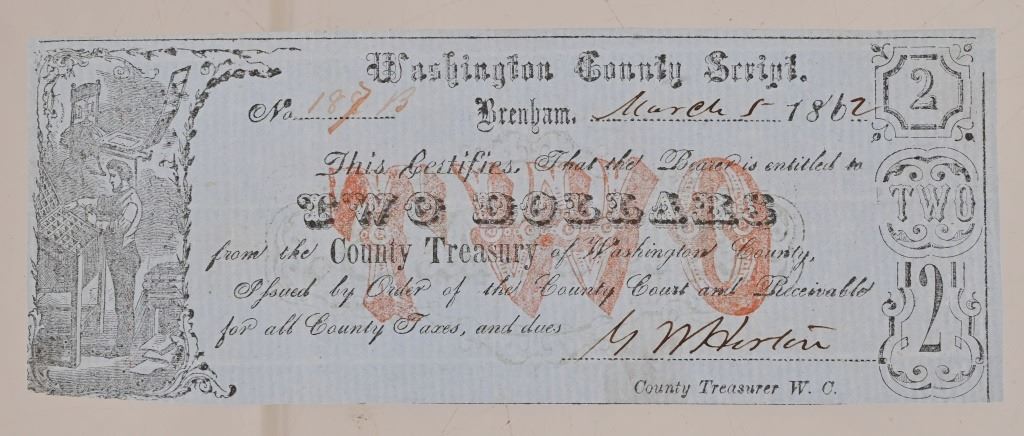 Washington County Script.
No 187 B Brenham, March 5 1862
This Certifies, That the Bearer is entitled to
TWO DOLLARS
from the County Treasury of Washington County,
Issued by Order of the County Court and Receivable
for all County Taxes, and dues
G W Horton
County Treasurer W. C.
TWO
2
TWO
2